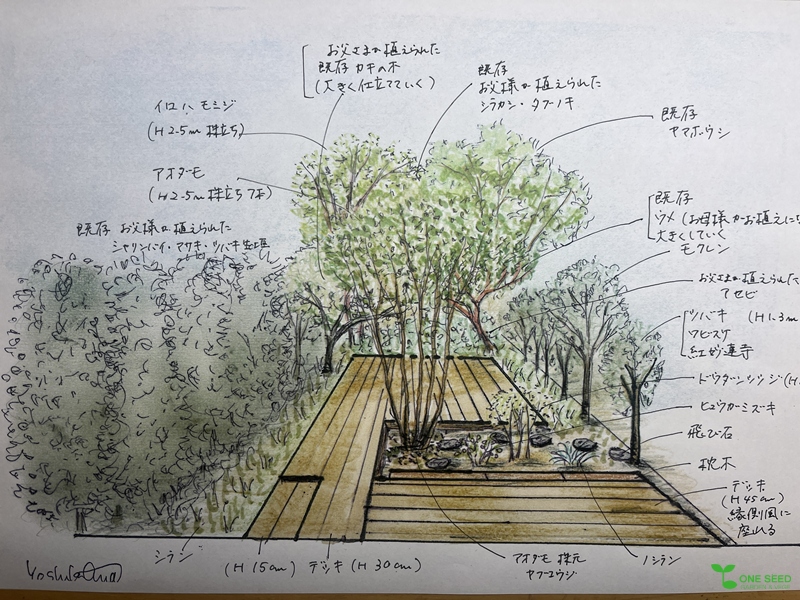 お父さまが植えられた
既存 カキの木
(大きく仕立てていく)
既存
お父様が植えられた
シラカシ・タブノキ
イロハモミジ
(H 2.5m 株立ち)
既存
ヤマボウシ
アオダモ
(H 2.5m 株立ち 7本)
既存 お父様が植えられた
シャリンバイ・マサキ・ツバキ生垣
既存
ウメ (お母様がお植えに
大きくしていく
モクレン
お父さまが植えられた
アセビ
ツバキ (H1.3m
ワビスケ
紅妙蓮寺
ドウダンツツジ(H
ヒュウガミズキ
飛び石
枕木
デッキ
(H 45cm)
縁側風に
座れる
シラン
(H 15cm) デッキ (H 30cm)
アオダモ 株元
ヤブコウジ
ノシラン
ONE SEED